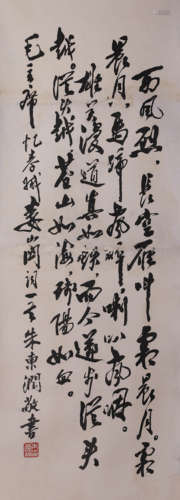 西风烈，長空雁叫霜晨月。霜
晨月，馬蹄声碎，喇叭声咽。
雄关漫道真如铁，而今迈步從头
越。從头越，苍山如海，残陽如血。
毛主席忆秦娥婁山関詞一首 朱東潤敬書